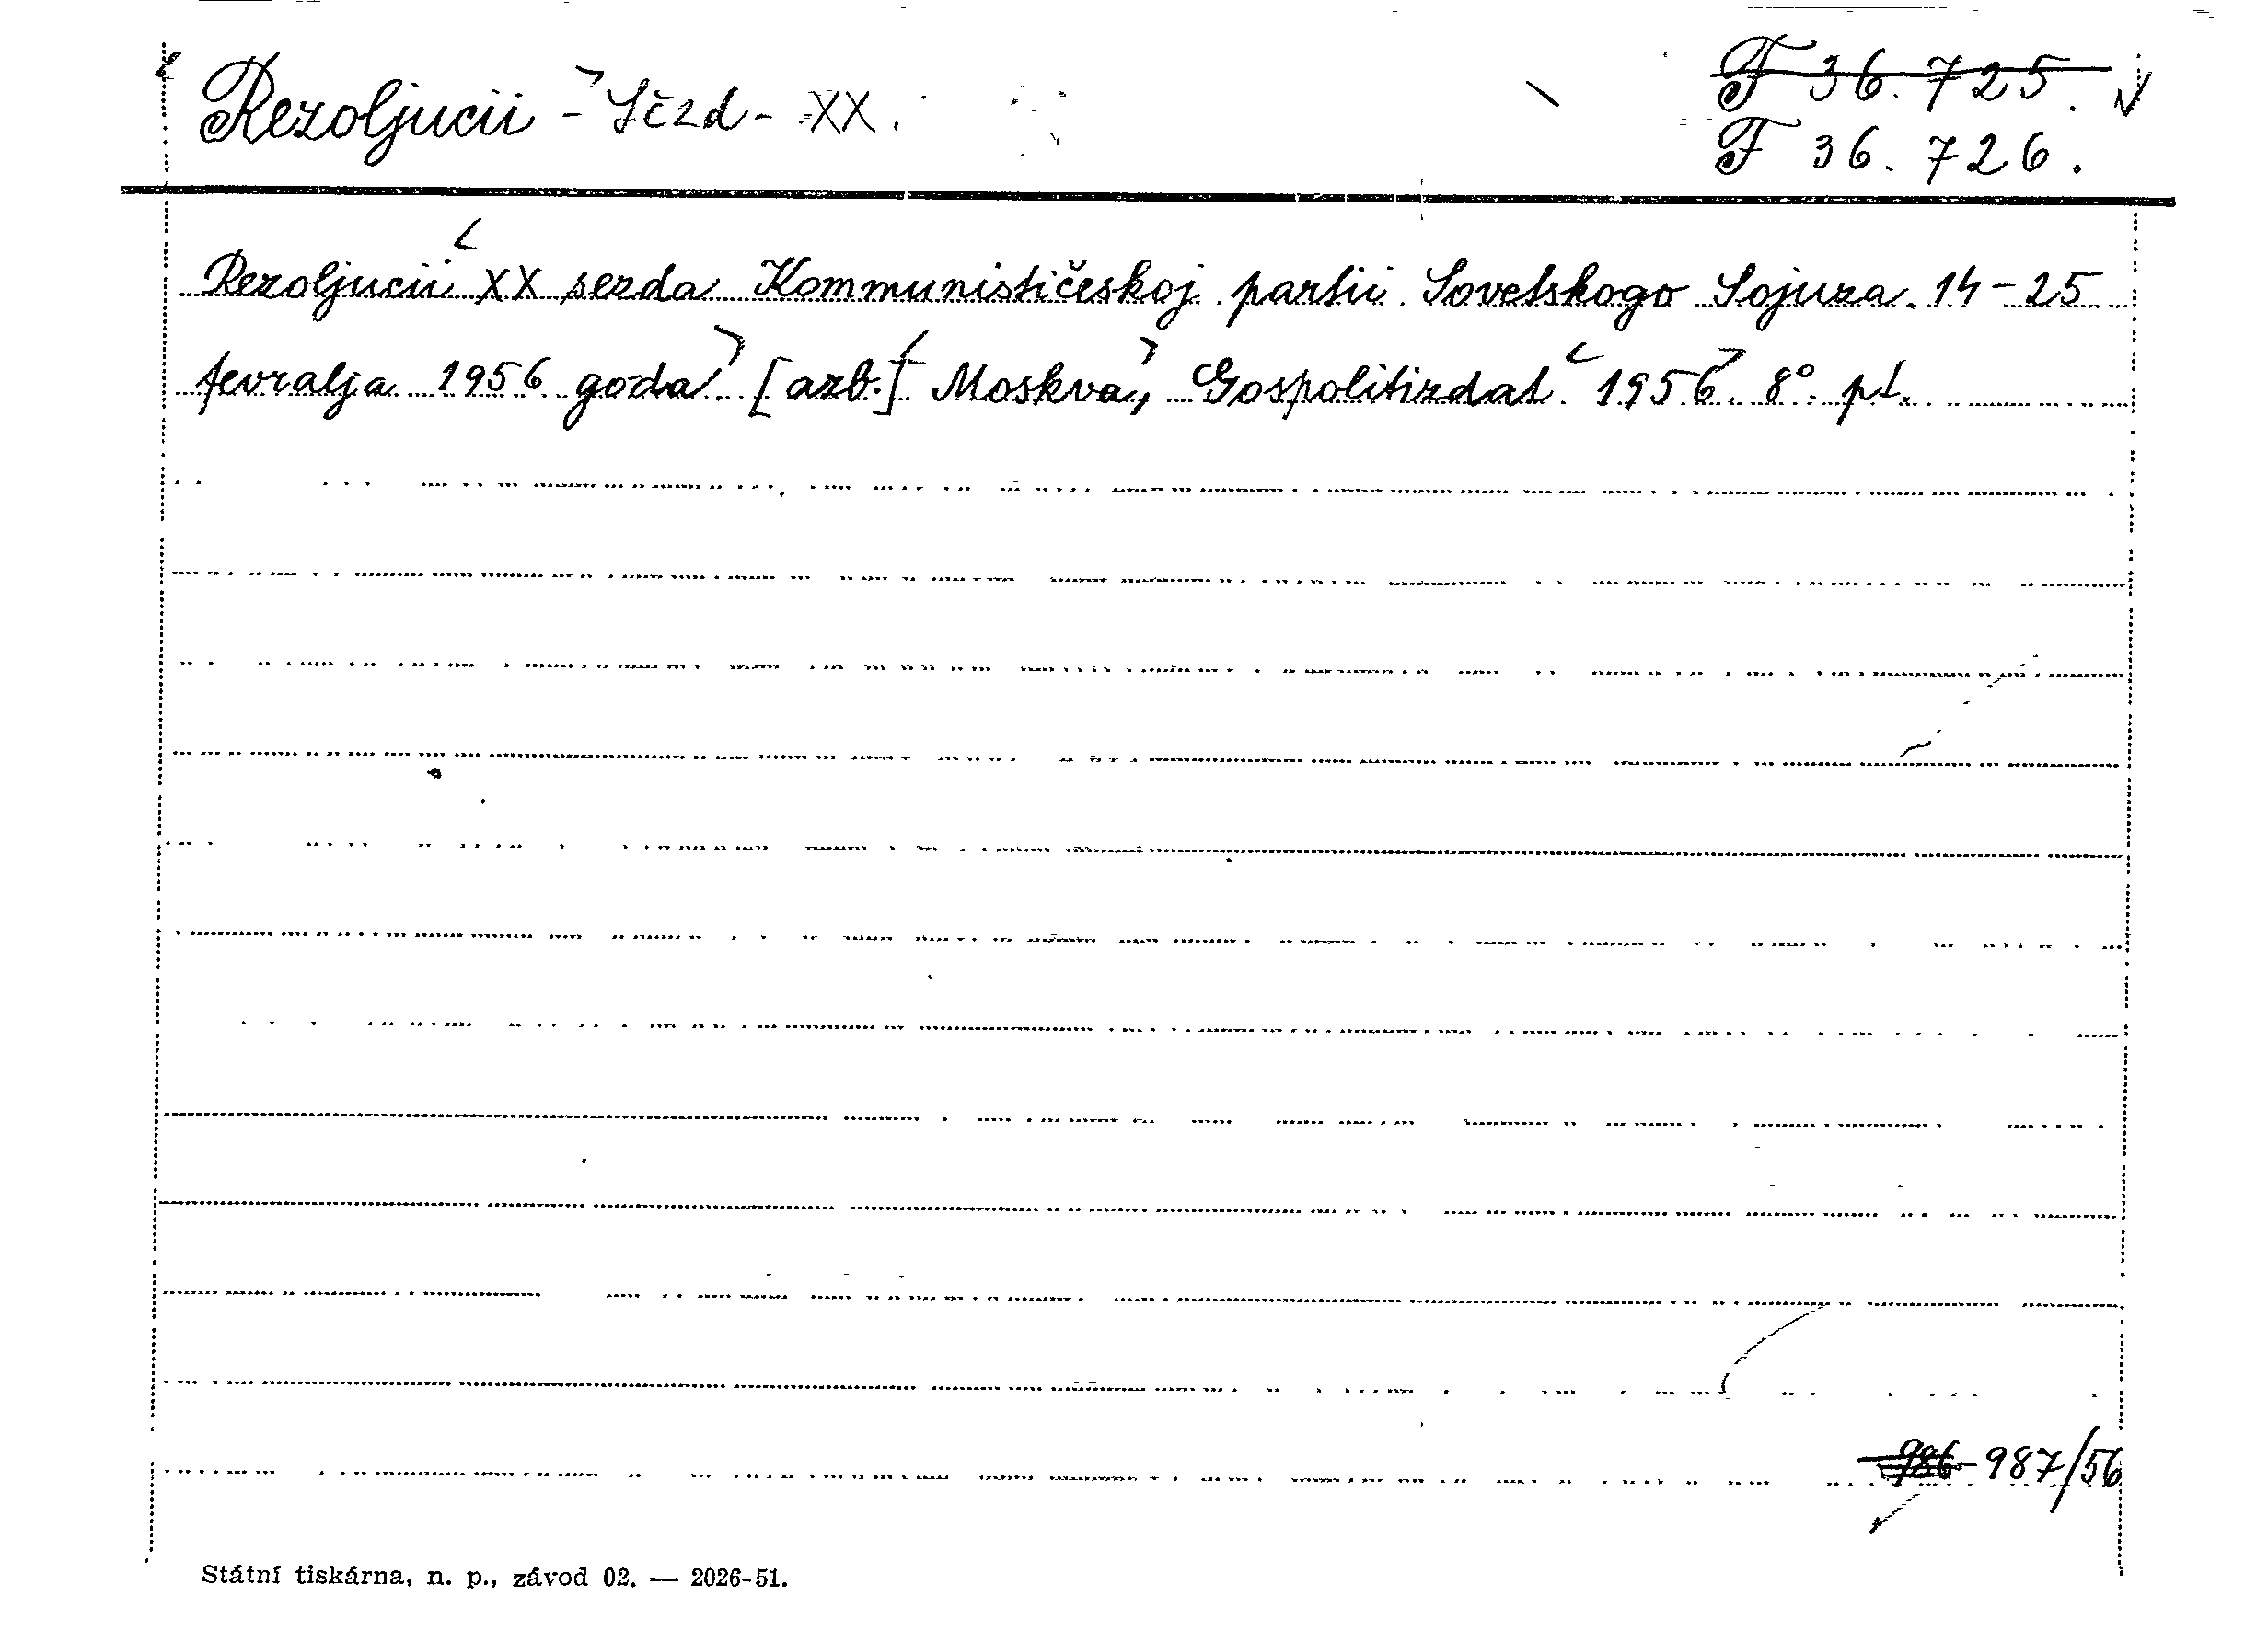 Rezoljucii - Sězd - XX.
F 36.725.
F 36.726.
Rezoljucii XX sezda Kommunističeskoj partii Sovetskogo Sojuza. 14-25
fevralja 1956 goda. [azb.] Moskva, Gospolitizdat 1956. 8°. pt.
986 987/56
Státní tiskárna, n. p., závod 02. — 2026-51.